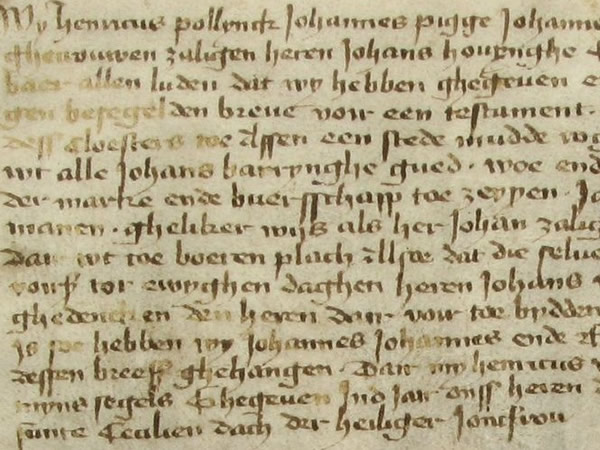 Wy henricus pollynck Johannes pigge Johannes
ghetruwen zaligen heren Johans houynghe
baer allen luden dat wy hebben ghegeven e
gen besegelden breue voir een testament.
dess Cloesters toe Assen een stede mudde rog
wt alle Johans batynghe gued. woe ende
der marke ende buerschapp toe zeyyen. Jo
manen. ghelikerwijs als her Johan zalig
Dair wt toe boeren plach Alsoe dat die selue
vors tot ewyghen daghen heren Johans
ghedencken den heren dair voir toe bydden
is soe hebben wy Johannes Johannes ende
dessen breeff ghehangen. Dair wy henricus
myns segels Ghegeven Int Jair onss heren
sunte Cecilien dach der heiliger Joncfrou